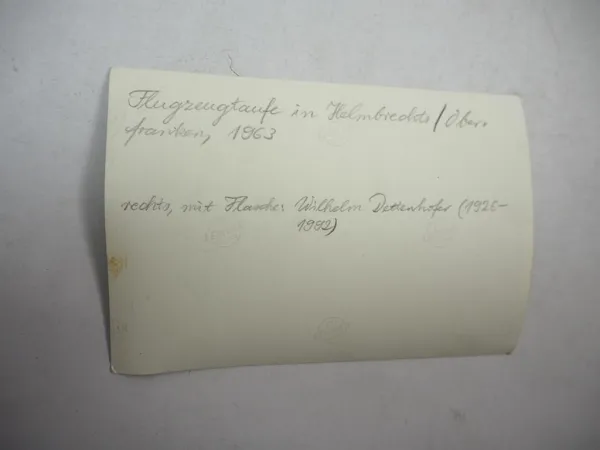 Flugzeugtaufe in Helmbrechts / Ober-
franken, 1963
rechts, mit Flasche: Wilhelm Dettenhofer (1926-
1982)